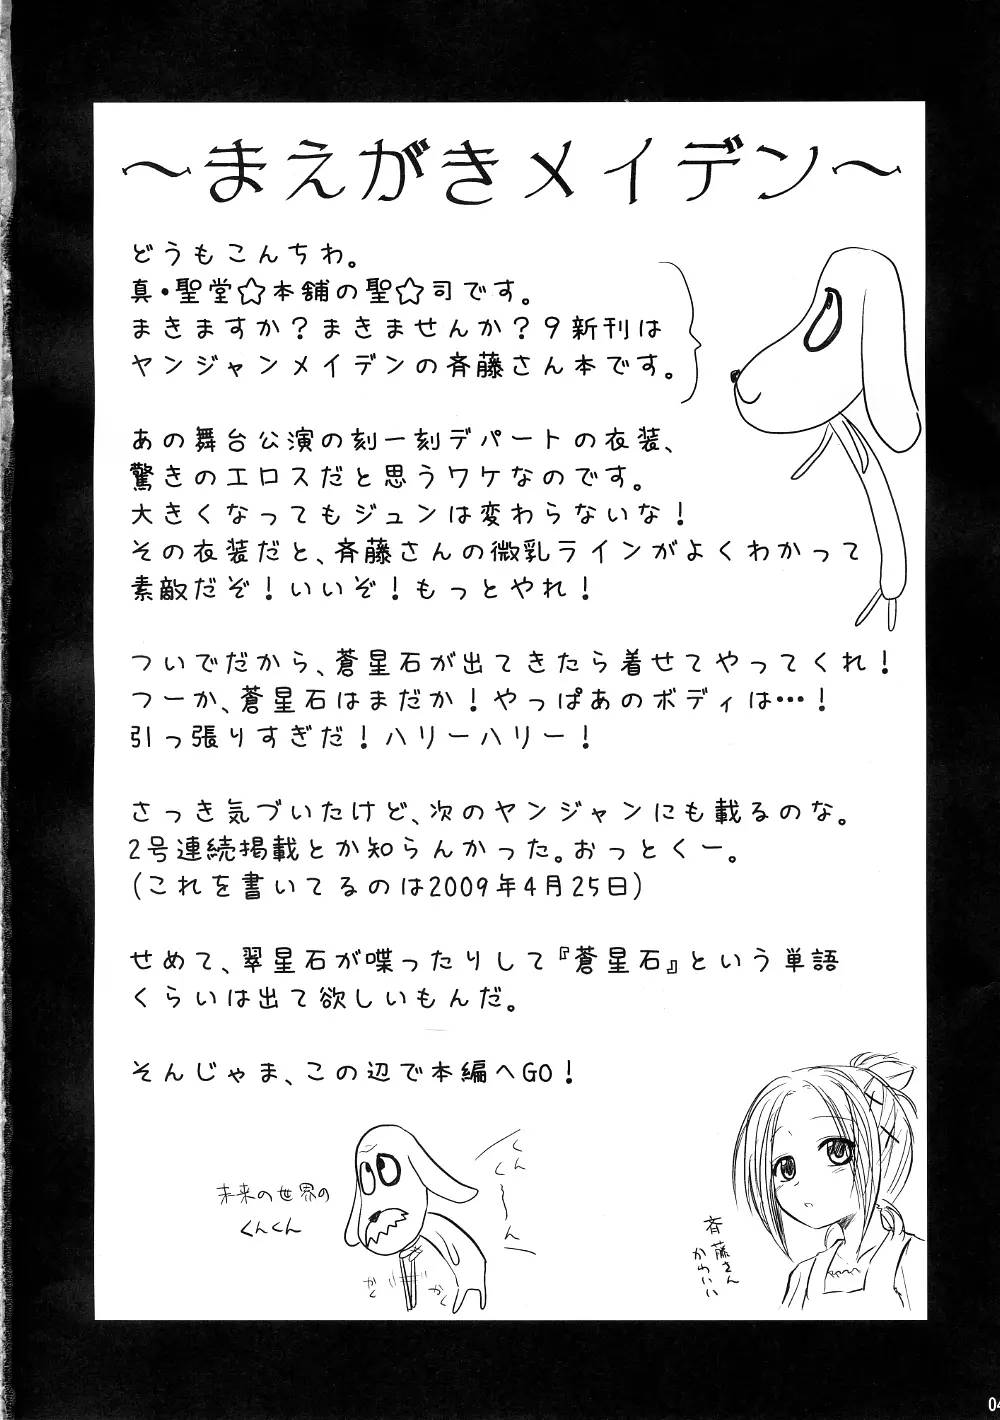 ～まえがきメイデン～
どうもこんちわ。
真・聖堂☆本舗の聖☆司です。
まきますか？まきませんか？9新刊は
ヤンジャンメイデンの斉藤さん本です。
あの舞台公演の刻一刻デパートの衣装、
驚きのエロスだと思うワケなのです。
大きくなってもジュンは変わらないな！
その衣装だと、斉藤さんの微乳ラインがよくわかって
素敵だぞ！いいぞ！もっとやれ！
ついでだから、蒼星石が出てきたら着せてやってくれ！
つーか、蒼星石はまだか！やっぱあのボディは…！
引っ張りすぎだ！ハリーハリー！
さっき気づいたけど、次のヤンジャンにも載るのな。
2号連続掲載とか知らんかった。おっとくー。
(これを書いてるのは2009年4月25日)
せめて、翠星石が喋ったりして『蒼星石』という単語
くらいは出て欲しいもんだ。
そんじゃま、この辺で本編へGO！
未来の世界の
くんくん
くんくーん
かく
かく
斉藤さん
かわいい
04